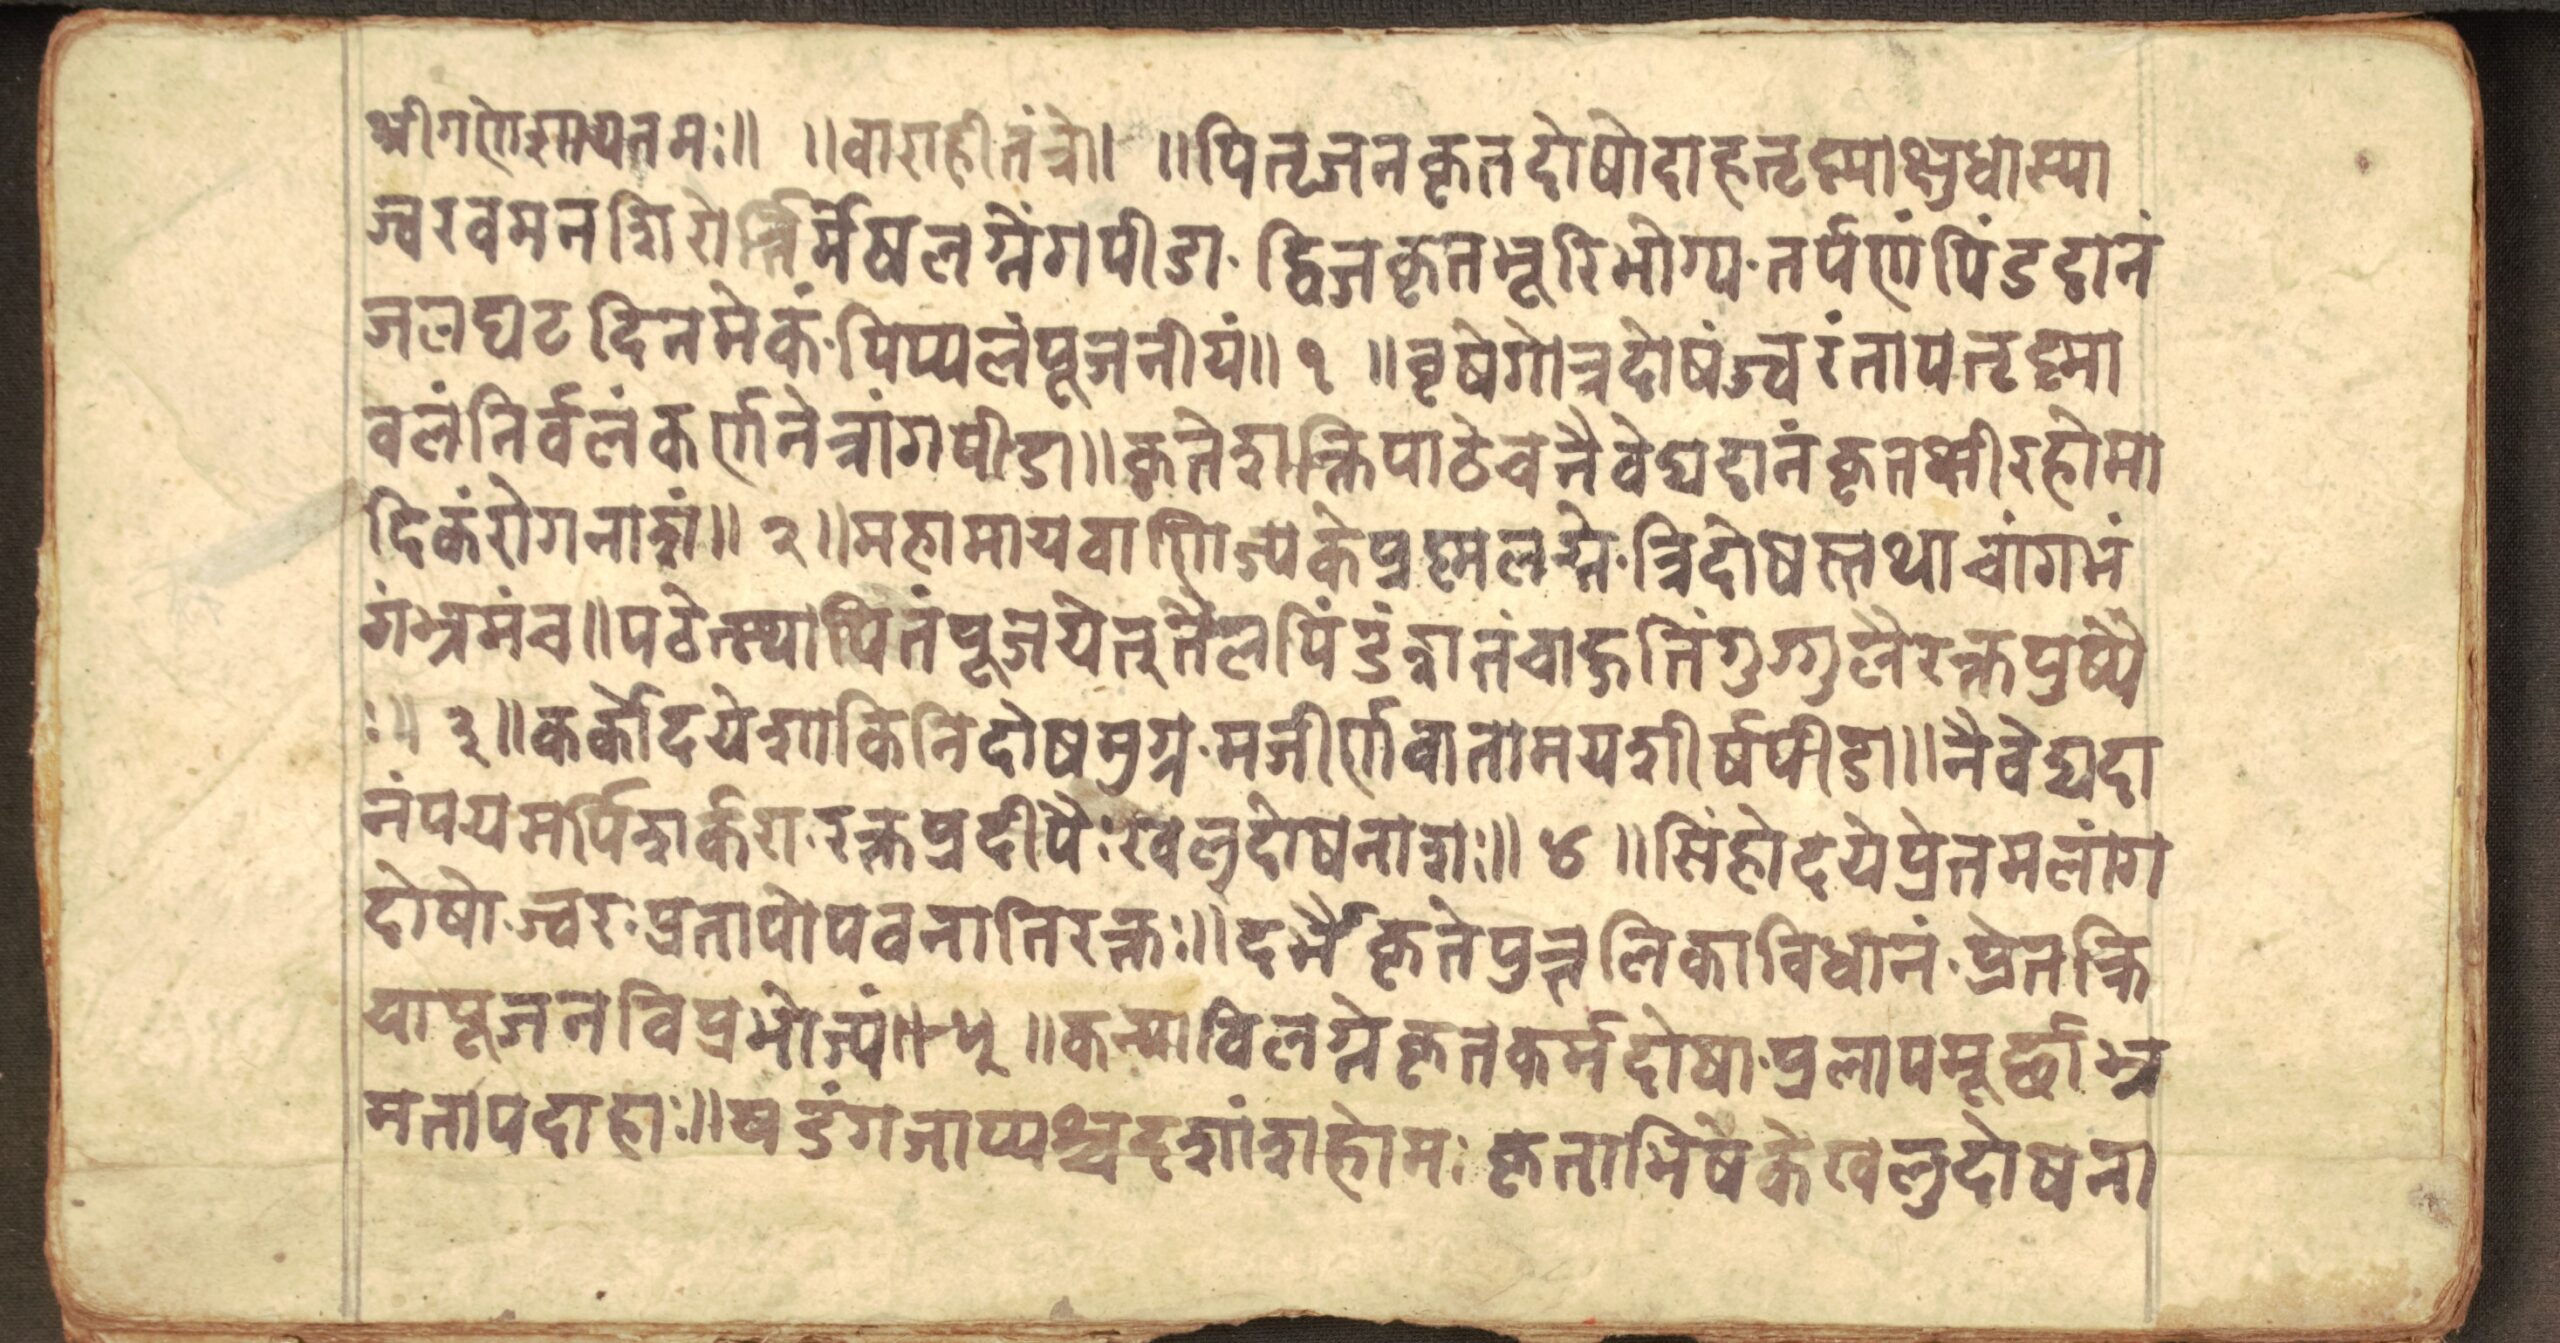 श्रीगणेशायनमः॥ ॥वाराहीतंत्रे। ॥पितृजनकृतदोषोदाहतृष्माक्षुधास्या
ज्वरवमनशिरोर्त्तिर्मेषलग्नेंगपीडा· द्विजकृतभूरिभोग्य·तर्पणंपिंडदानं
जलघट दिनमेकं·पिप्पलंपूजनीयं॥ १ ॥वृषेगोत्रदोषंज्वरंतापतृष्मा
वलंनिर्वलंकर्णनेत्रांगपीडा॥कृतेशान्तिपाठेचनैवेद्यदानंकृतक्षीरहोमा
दिकंरोगनाशं॥ २॥महामायवाणिज्यकेप्रष्मलग्ने·त्रिदोषस्तथाचांगभं
गंभ्रमंच॥पठेत्स्थापितंपूजयेत्तुतैलपिंडंशतंचाहुतिंगुग्गुलैरक्तपुष्पै
ः॥ ३॥कर्कोदयेशाकिनिदोषमुग्र·मजीर्णवातामयशीर्षपीडा॥नैवेद्यदा
नंपयसर्पिशर्करा·रक्तप्रदीपैःखलुदोषनाशः॥ ४ ॥सिंहोदयेप्रेतमलांग
दोषो·ज्वर·प्रतापोपवनातिरक्तः॥दर्भैकृतेपुत्तलिकाविधानं·प्रेतक्रि
यापूजनविप्रभोज्यं॥ ५ ॥कन्याविलग्नेकृतकर्मदोषा·प्रलापमूर्छाभ्र
मतापदाहाः॥षडंगजाप्यश्चदशांशहोमः कृताभिषेकेखलुदोषना